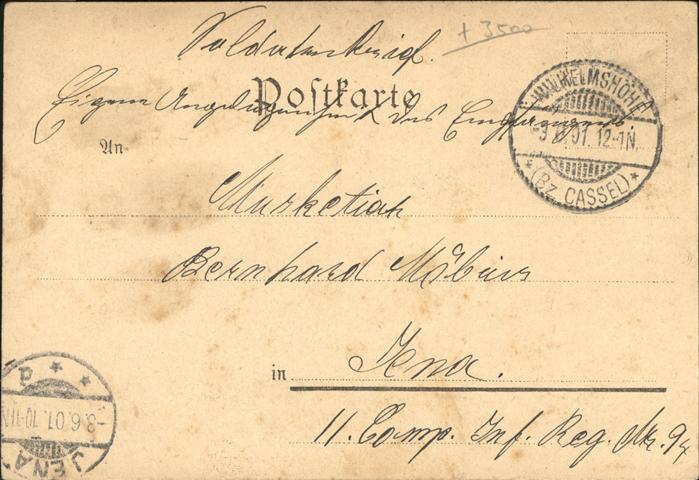 Soldatenbrief.
+ 3500
Postkarte
Eigene Angelegenheit des Empfängers.
WILHELMSHÖHE
-9.6.01. 12-1N.
* (Bz. CASSEL) *
An
Musketier
Bernhard Möbius
in Jena.
11. Comp. Inf. Reg. Nr. 94
JENA
-3.6.01. 10-11N.
* * d